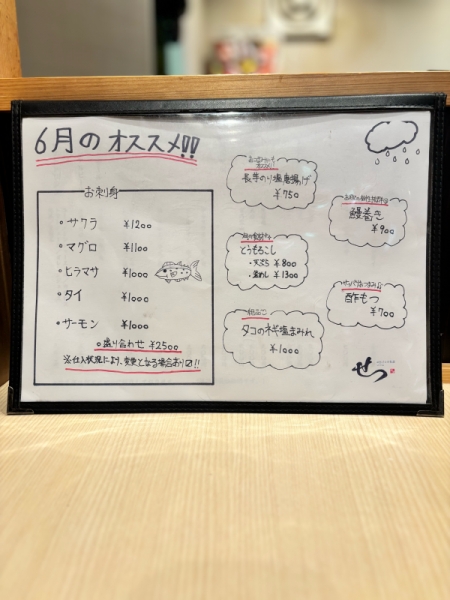 6月のオススメ!!
お刺身
・サクラ ¥1200
・マグロ ¥1100
・ヒラマサ ¥1000
・タイ ¥1000
・サーモン ¥1000
◦盛り合わせ ¥2500
※仕入状況により、変更となる場合あり〼!!
長芋のり塩唐揚げ
¥750
鰻巻き
¥900
とうもろこし
・天ぷら ¥800
・釜めし ¥1300
酢もつ
¥700
タコのネギ塩まみれ
¥1000
せつ